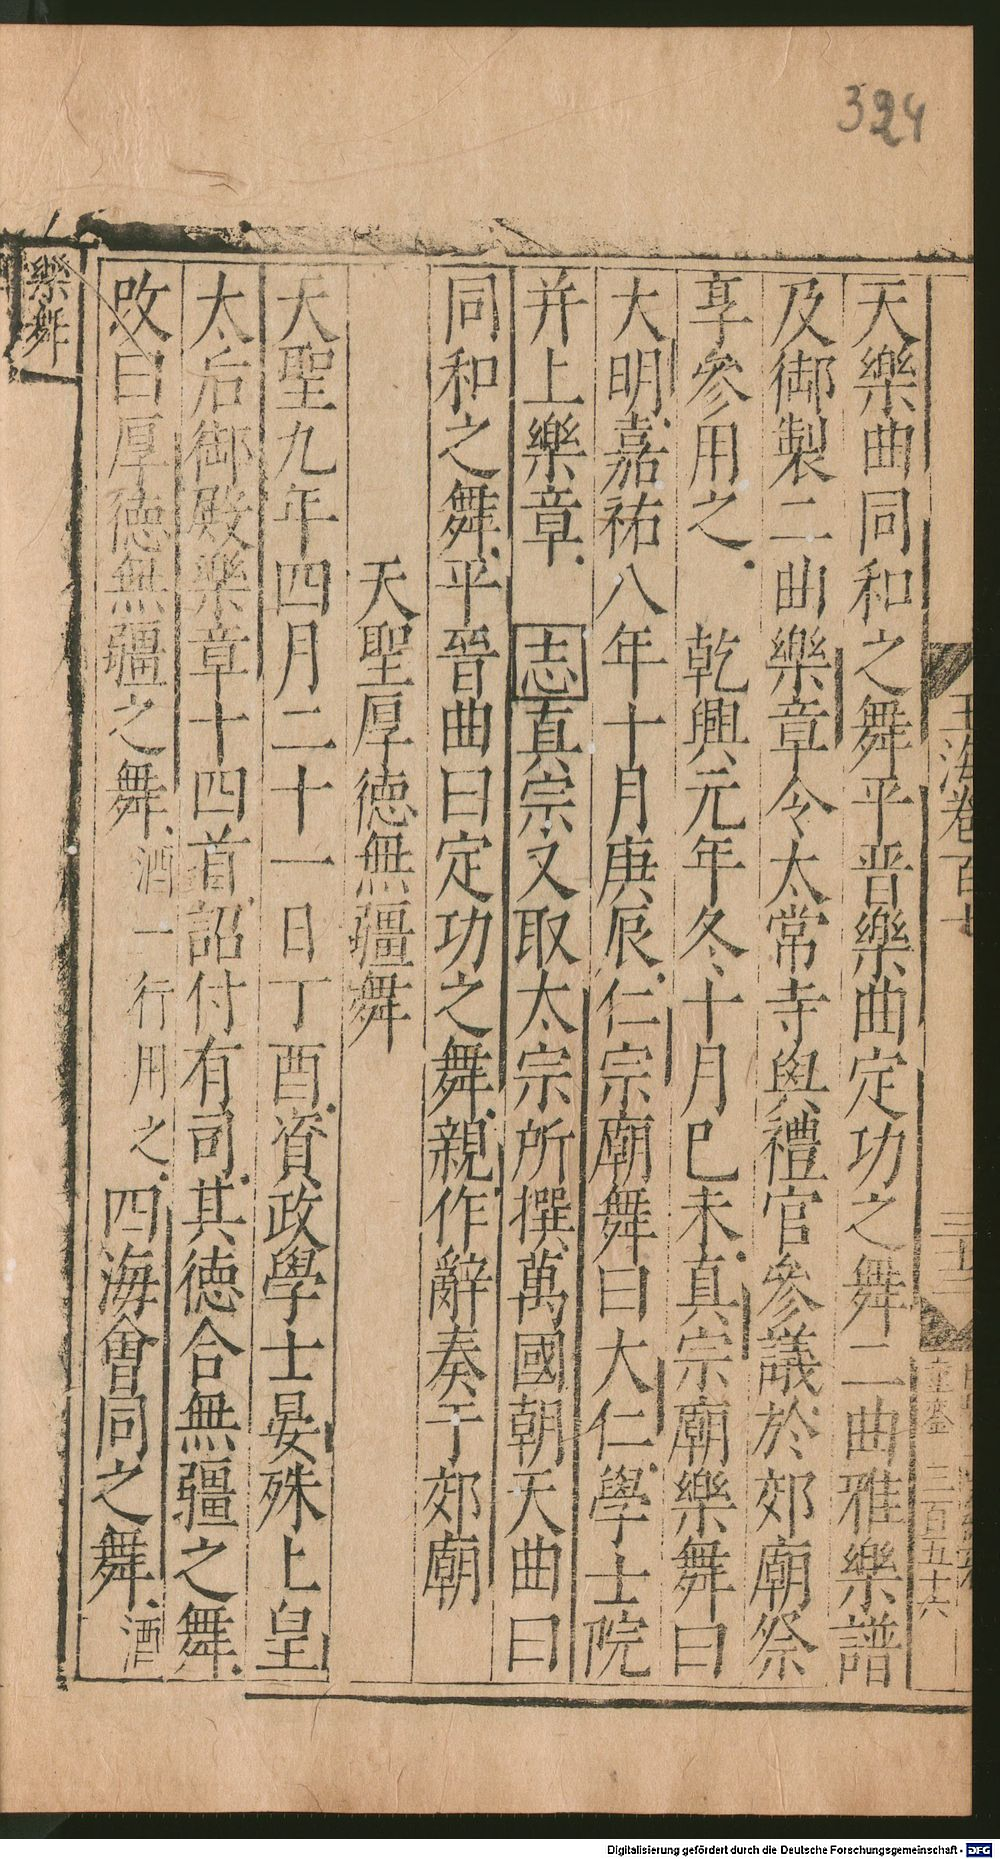 324
玉海卷百七
三十二
三百五十六
天樂曲同和之舞平晋樂曲定功之舞二曲雅樂譜
及御製二曲樂章令太常寺與禮官參議於郊廟祭
享參用之 乾興元年冬十月己未真宗廟樂舞曰
大明嘉祐八年十月庚辰仁宗廟舞曰大仁學士院
并上樂章 志真宗又取太宗所撰萬國朝天曲曰
同和之舞平晉曲曰定功之舞親作辭奏于郊廟
天聖厚德無疆舞
天聖九年四月二十一日丁酉資政學士晏殊上皇
太后御殿樂章十四首詔付有司其德合無疆之舞
改曰厚德無疆之舞酒一行用之四海會同之舞酒
樂舞
Digitalisierung gefördert durch die Deutsche Forschungsgemeinschaft - DFG